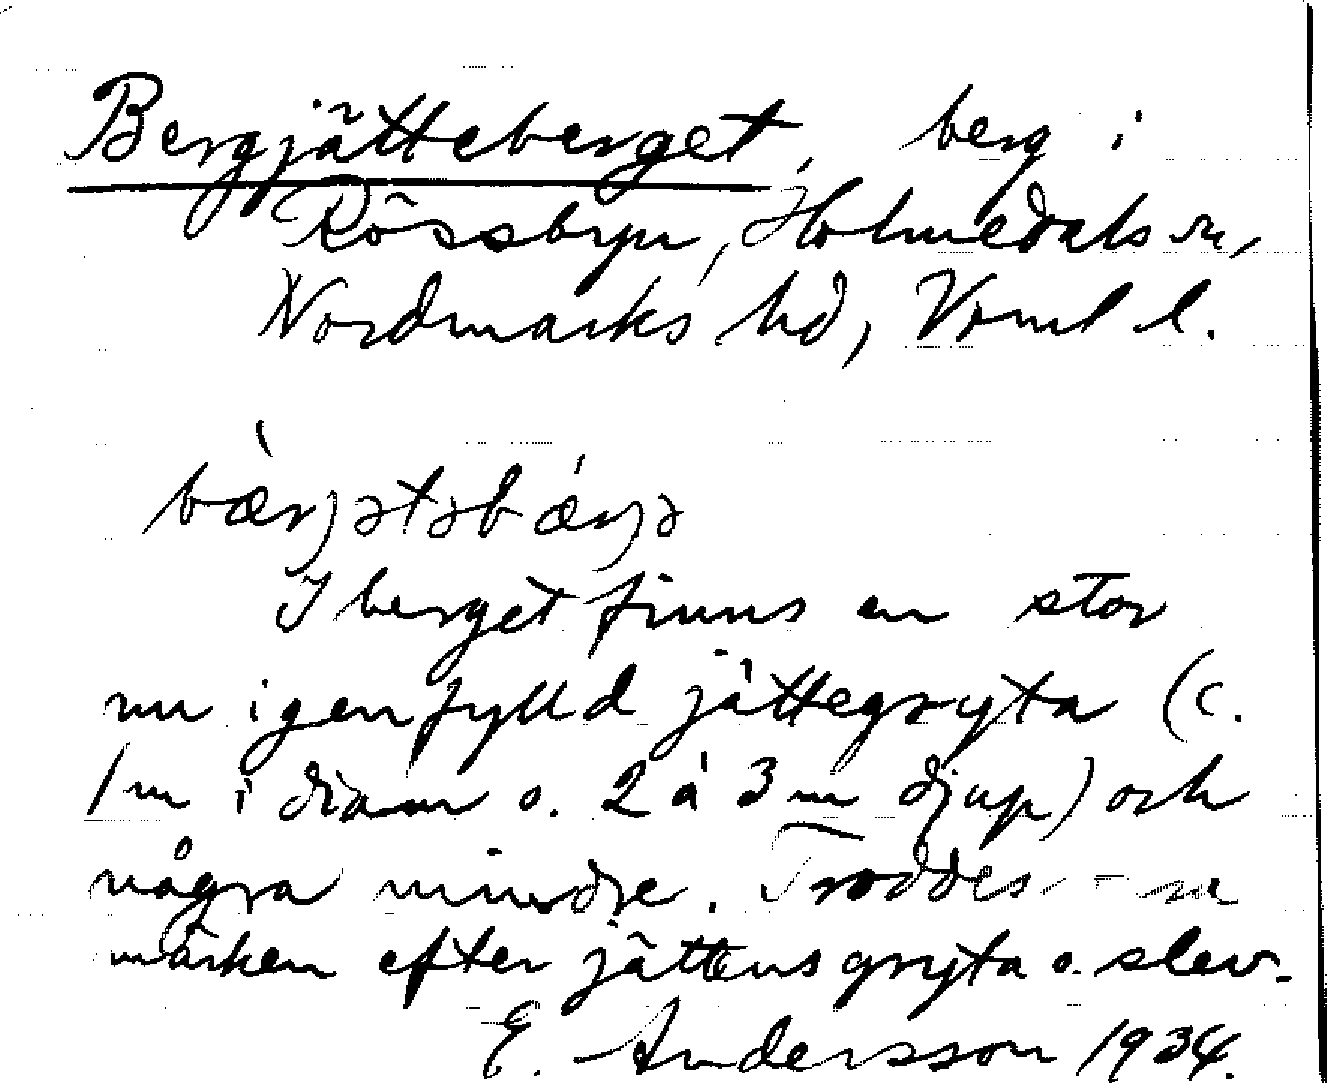 Bergjätteberget, berg i
Rössbyn, Holmedals sn,
Nordmarks hd, Verml l.
bæ̀rjətəbǽrjə
I berget finns en stor
nu igenfylld jättegryta (c.
1 m i diam o. 2 à 3 m djup) och
några mindre. Troddes
märken efter jättens gryta o. slev.
E. Andersson 1934.